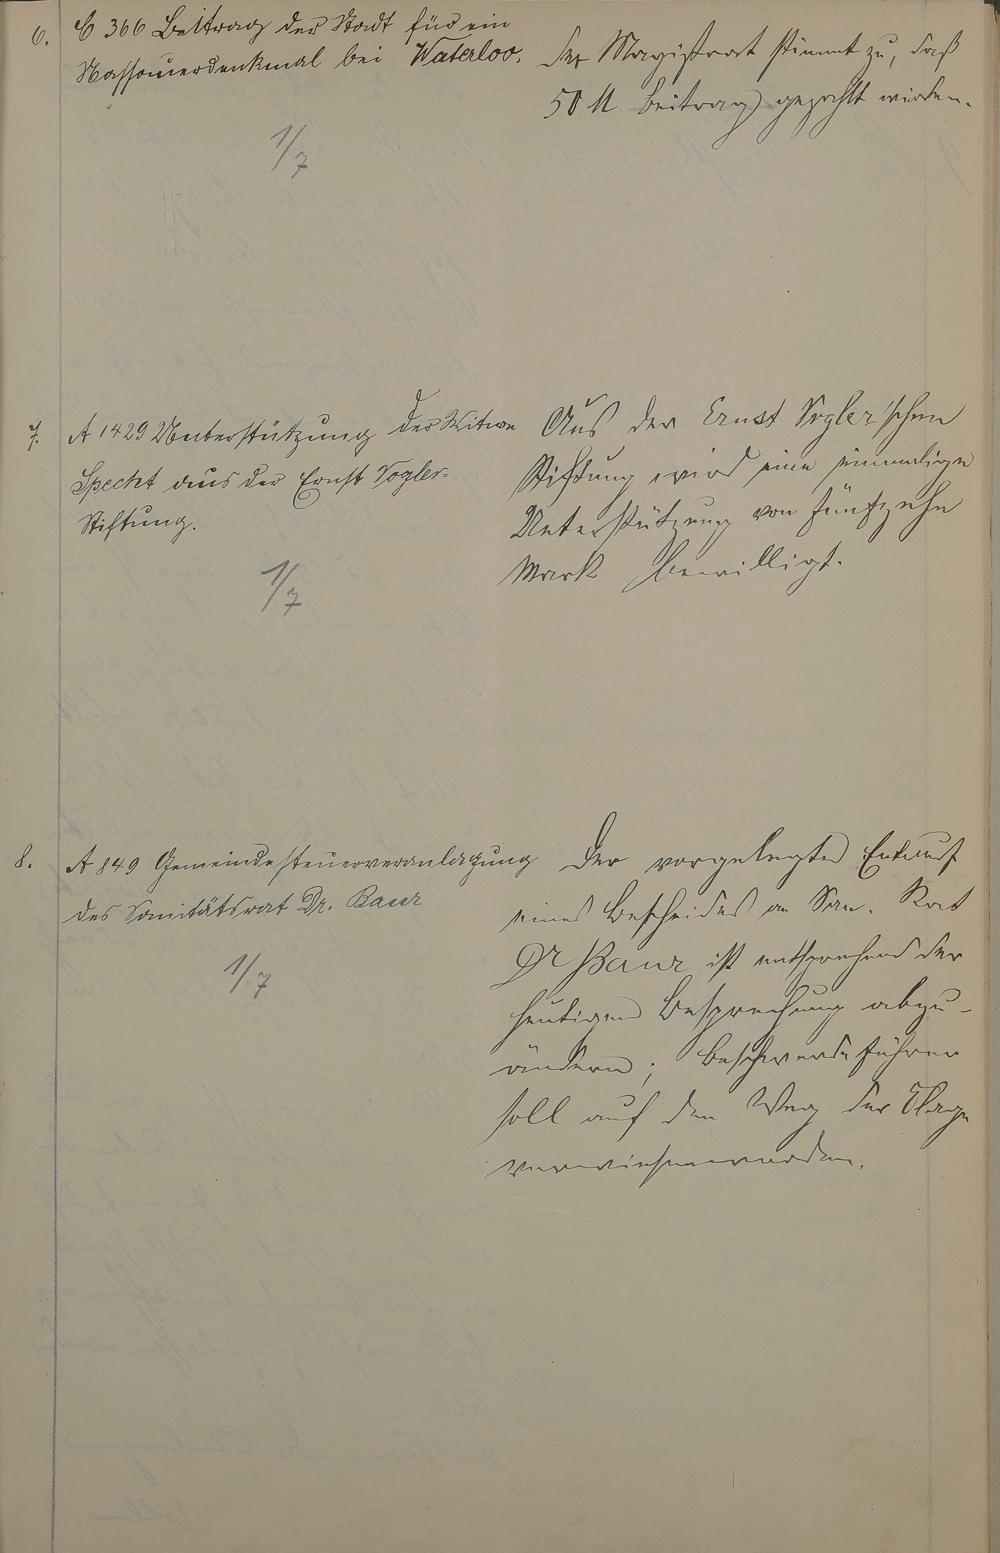 6.
C 366 Beitrag der Stadt für ein
Nassauerdenkmal bei Waterloo.
Der Magistrat stimmt zu, daß
50 M Beitrag gezahlt werden.
1/7
7.
A 1429 Unterstützung der Witwe
Specht aus der Ernst Vogler-
Stiftung.
Aus der Ernst Vogler'schen
Stiftung wird eine einmalige
Unterstützung von fünfzehn
Mark bewilligt.
1/7
8.
A 849 Gemeindesteuerveranlagung
des Sanitätsrat Dr. Baur
Der vorgelegte Entwurf
eines Bescheides an San. Rat
Dr Baur ist entsprechend der
heutigen Besprechung abzu-
ändern; Beschwerdeführer
soll auf den Weg der Klage
verwiesen werden.
1/7